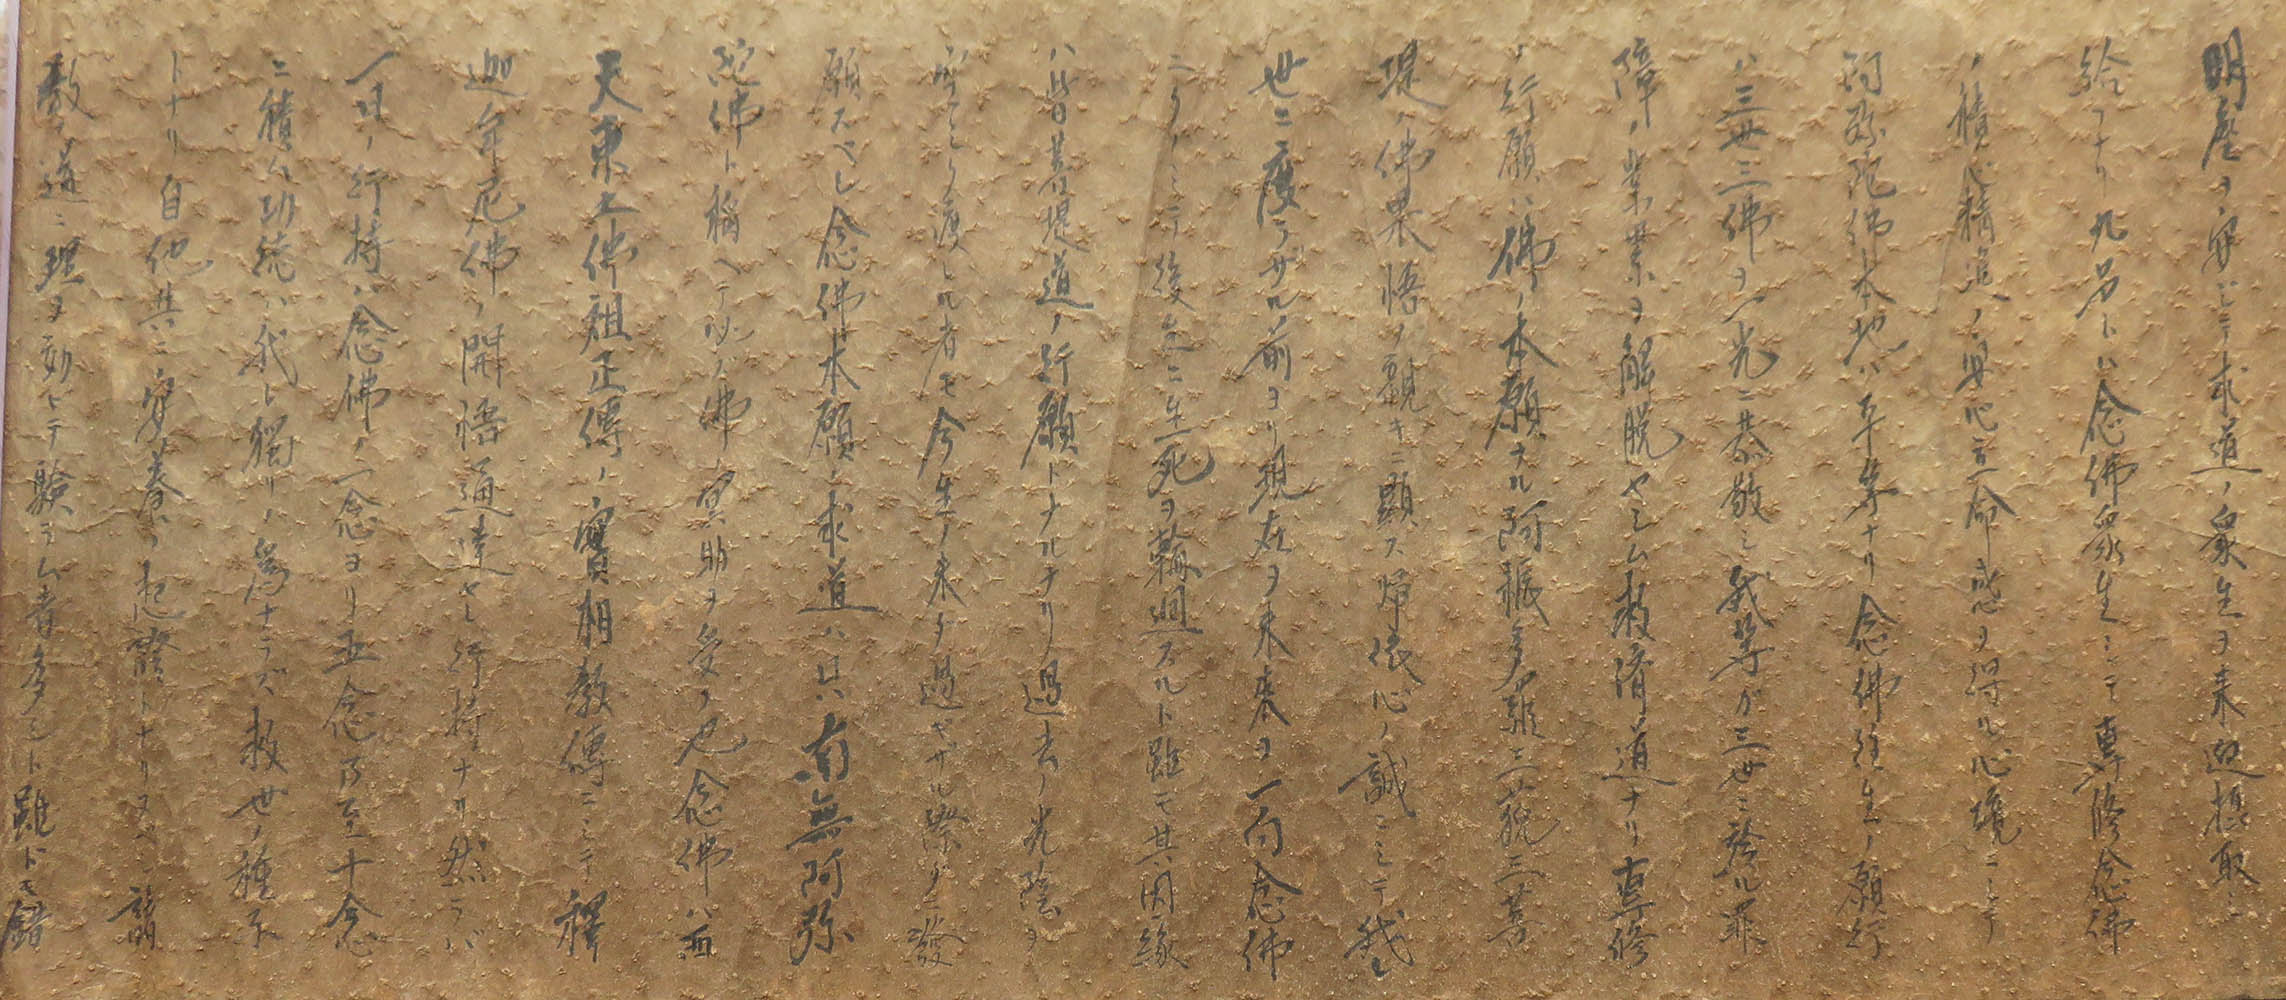 明慮ヲ安ジテ求道ノ衆生ヲ来迎摂取シ
給フナリ凡乃トハ念佛衆生ニシテ専修念佛
ノ積心精進ノ安心立命感ヲ得ル心境ニシテ
阿弥陀佛本地ハ平等ナリ念佛往生ノ願行
ハ三世三佛ヲ一光ニ恭敬シ我等ガ三世ニ於ル罪
障ノ業累ヲ解脱セシム救済道ナリ専修
ノ行願ハ佛ノ本願ナル阿耨多羅三藐三菩
提ノ佛果悟ノ観キニ顕ス帰依心ノ誠ニシテ我
世ニ度ラザル前ヨリ現在ヲ未来ヲ一向念佛
ニノミニテ後生ニ生死ヲ輪廻スルト雖モ其因縁
ハ皆菩提道ノ行願トナルナリ過去ノ光陰ヲ
渡レル者モ今生ノ未ダ過ギザル際ダニ發
願スベレ念佛本願ノ求道ハ只南無阿弥
陀佛ト稱ヘテ必ズ佛ノ冥助ヲ受ク也念佛ハ西
天東土佛祖正傳ノ實相教傳ニシテ釋
迦牟尼佛ノ開悟通達セシ行持ナリ然ラバ
一日ノ行持ハ念佛ノ一念ヨリ五念乃至十念
ニ積ム功徳ハ我レ獨リノ為ナラズ救世ノ種子
トナリ自他共ニ安養ノ起證トナリヌベシ諸
教ノ道ニ理ヲ動レテ験ラム者多シト雖ドモ錯